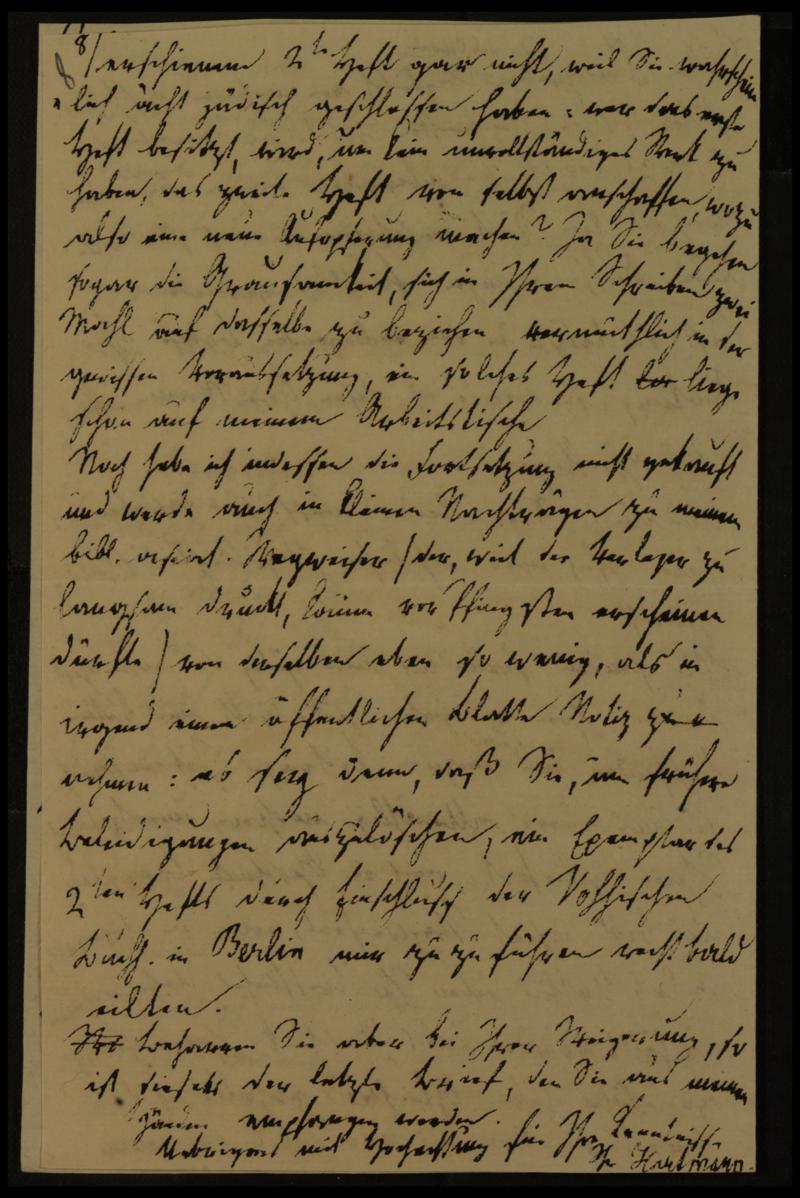 8/ erschienene 2te Heft gar nicht, weil Sie wahrschein
lich ächt jüdisch geschlossen haben: wer das erste
Heft besitzt, wird, um kein unvollständiges Werk zu
haben, das zweite Heft von selbst anschaffen, wozu
also eine neue Aufopferung machen? Ja Sie begehen
sogar die Grausamkeit, sich in Ihrem Schreiben zwei
Mahl auf dasselbe zu beziehen vermuthlich in der
gewissen Voraussetzung, ein solches Heft liege
schon auf meinem Arbeitstische
Noch habe ich indessen die Fortsetzung nicht gekauft
und werde auch in kleinen Nachträgen zu meinem
bibl. asiat. Wegweiser (der, weil der Verleger zu
langsam druckt, kaum vor Pfingsten erscheinen
dürfte) von derselben eben so wenig, als in
irgend einem öffentlichen Blatte Notiz
nehmen: es sey denn, daß Sie, um frühere
Beleidigungen auszulöschen, ein Exemplar des
2ten Hefts durch Einschluß der Voßischen
Buchh. in Berlin mir zuzuführen recht bald
eilten.
Beharren Sie aber bei Ihrer Weigerung, so
ist dieses der letzte Brief, den Sie aus meinen
Händen empfangen werden.
Uebrigens mit Hochachtung für Ihre Kenntnisse
Ihr Hartmann.